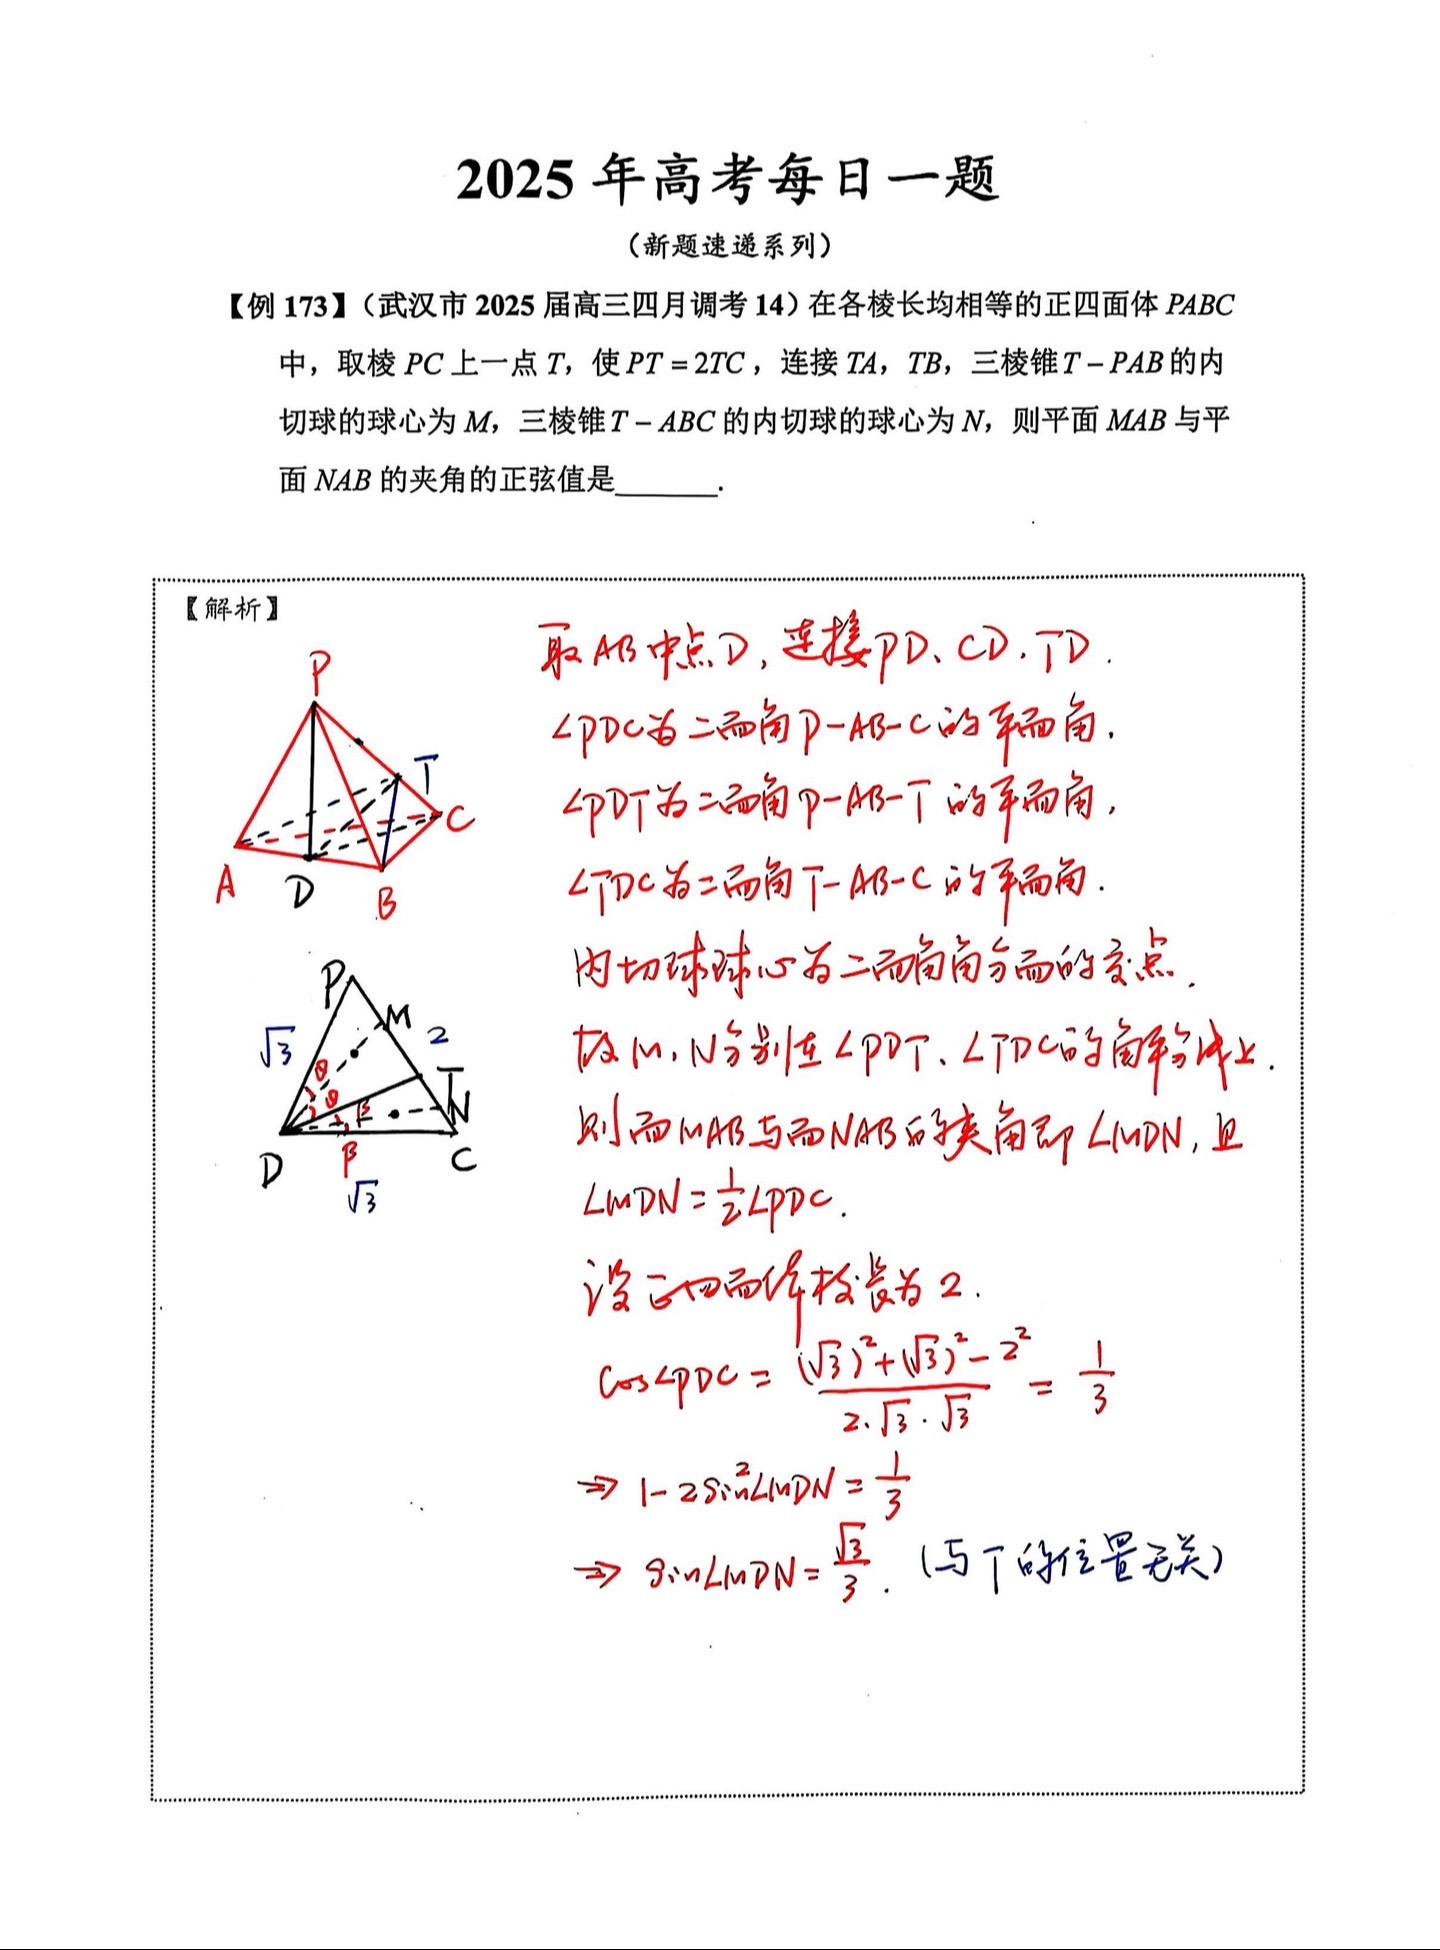 2025 年高考每日一题
（新题速递系列）
【例 173】（武汉市 2025 届高三四月调考 14）在各棱长均相等的正四面体 PABC
中，取棱 PC 上一点 T，使 PT = 2TC，连接 TA，TB，三棱锥 T − PAB 的内
切球的球心为 M，三棱锥 T − ABC 的内切球的球心为 N，则平面 MAB 与平
面 NAB 的夹角的正弦值是______.
【解析】
P
T
C
A
D
B
取AB中点D，连接PD、CD、TD.
∠PDC为二面角P-AB-C的平面角.
∠PDT为二面角P-AB-T的平面角，
∠TDC为二面角T-AB-C的平面角.
内切球球心为二面角角分面的交点.
故M、N分别在∠PDT、∠TDC的角平分线上.
则面MAB与面NAB的夹角即∠MDN，且
∠MDN=½∠PDC.
P
M
√3
2
θ
θ
T
β
N
D
β
C
√3
设正四面体棱长为2.
cos∠PDC = ((√3)²+(√3)²-2²)/(2·√3·√3) = 1/3
⇒ 1-2sin²∠MDN = 1/3
⇒ sin∠MDN = √3/3. （与T的位置无关）